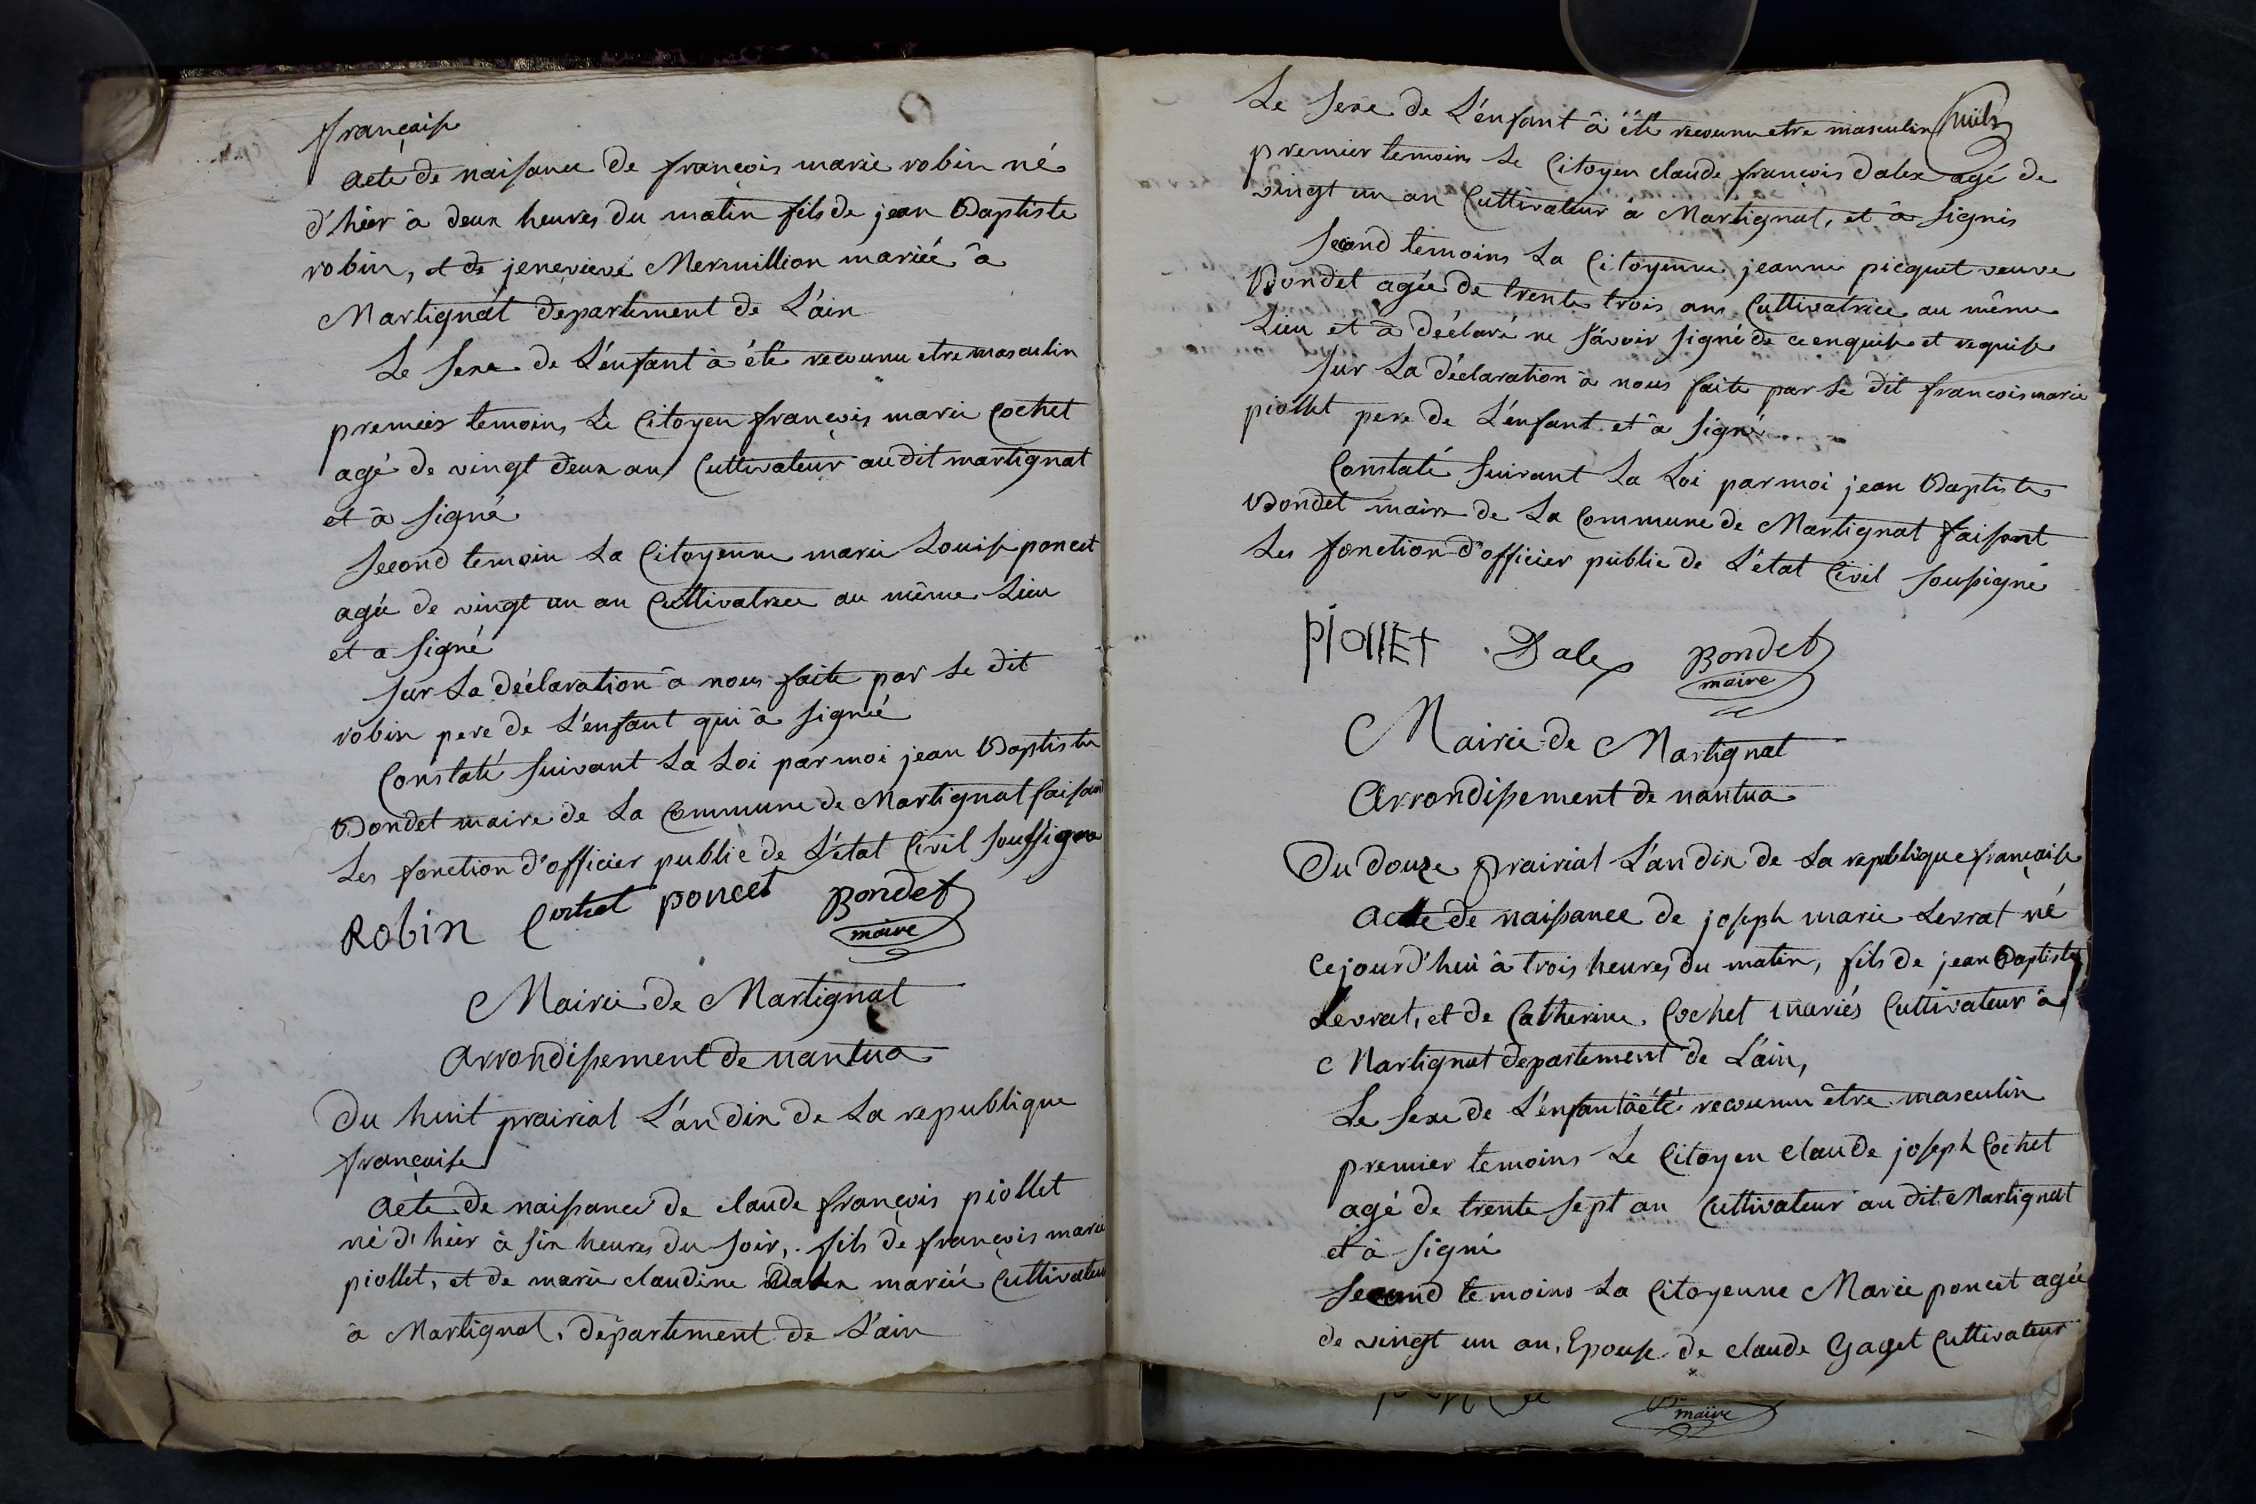 française
acte de naissance de françois marie robin né
d'hier à deux heures du matin fils de jean Baptiste
robin, et de jenevieve Mermillion mariée à
Martignat departement de L'ain
Le sexe de L'enfant à été reconnu etre masculin
premier temoins Le Citoyen françois marie Cochet
agé de vingt deux an Cultivateur audit martignat
et à signé
second temoin La Citoyenne marie Louise poncet
agée de vingt un an Cultivatrice au même Lieu
et a signé
sur La déclaration à nous faite par Le dit
robin pere de L'enfant qui à signé
Constaté suivant La Loi par moi jean Baptiste
Bondet maire de La Commune de Martignat faisant
Les fonction d'officier public de L'état Civil soussigné
Robin Cochet poncet Bondet
maire
Mairie de Martignat
arrondissement de nantua
Du huit prairial L'an dix de La republique
française
acte de naissance de claude françois piollet
né d'hier à six heures du soir, fils de françois marie
piollet, et de marie claudine Dalex mariée Cultivateur
à Martignat, département de L'ain
Le sexe de L'enfant à été reconnu etre masculin
premier temoins Le Citoyen claude françois Dalex agé de
vingt un an Cultivateur à Martignat, et à signés
second temoins La Citoyenne jeanne picquet veuve
Bondet agée de trente trois ans Cultivatrice au même
Lieu et à déclaré ne sávoir signé de ce enquise et requise
sur La déclaration à nous faite par Le dit françois marie
piollet pere de L'enfant et à signé
Constaté suivant La Loi par moi jean Baptiste
Bondet maire de La Commune de Martignat faisant
Les fonction d'officier public de L'état Civil soussigné
PIOLLET Dalex Bondet
maire
Mairie de Martignat
Arrondissement de nantua
Du douze prairial L'an dix de La republique française
Acte de naissance de joseph marie Levrat né
Cejourd'hui à trois heures du matin, fils de jean Baptiste
Levrat, et de Catherine Cochet mariés Cultivateur à
Martignat departement de L'ain,
Le sexe de L'enfant à été reconnu être masculin
premier temoins Le Citoyen Claude joseph Cochet
agé de trente sept an Cultivateur au dit Martignat
et à signé
second temoins La Citoyenne Marie poncet agée
de vingt un an, Epouse de claude Gaget Cultivateur
maire